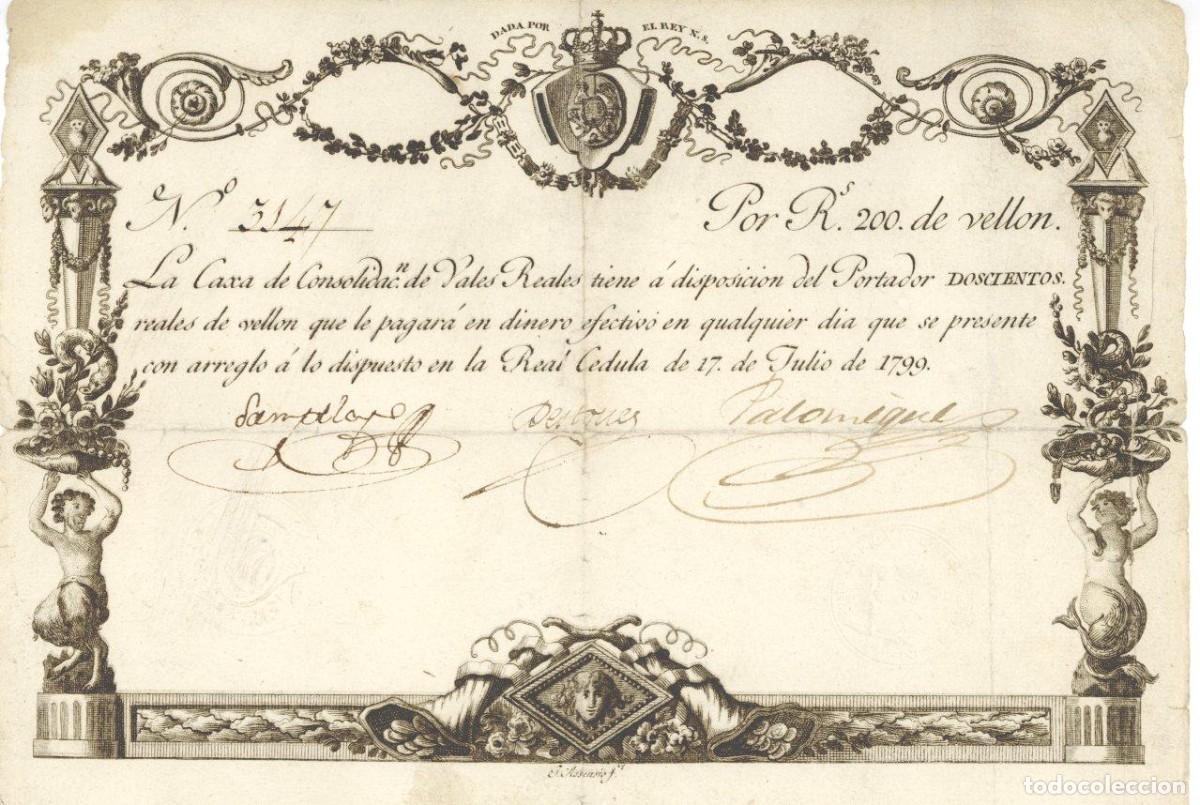 DADA POR EL REY N. S.
N.º 3147 Por R.s 200. de vellon.
La Caxa de Consolidac.n de Vales Reales tiene á disposicion del Portador DOSCIENTOS.
reales de vellon que le pagará en dinero efectivo en qualquier dia que se presente
con arreglo á lo dispuesto en la Real Cedula de 17. de Julio de 1799.
Palomeque
todocoleccion